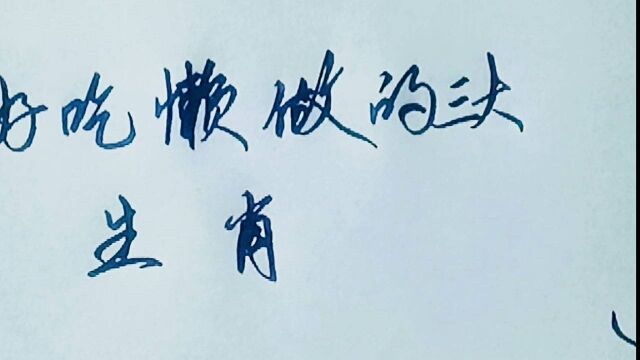 好吃懒做的三大
生肖